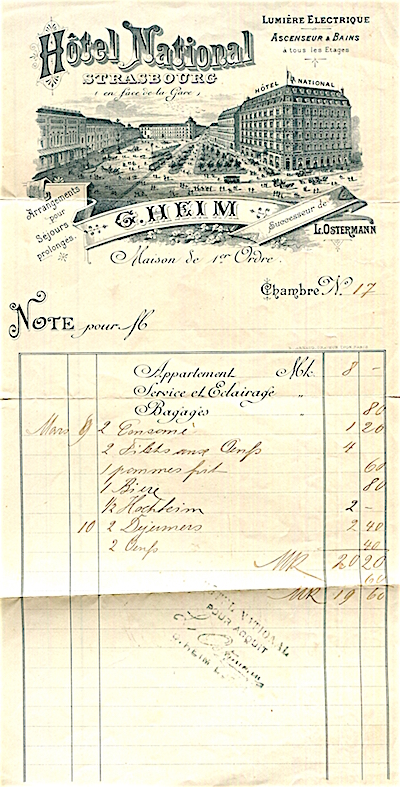 Hôtel National
STRASBOURG
(en face de la Gare)
LUMIÈRE ELECTRIQUE
ASCENSEUR & BAINS
à tous les Etages
HÔTEL NATIONAL
Arrangements
pour
Séjours
prolongés.
G. HEIM
Successeur de
L. OSTERMANN
Maison de 1er Ordre.
Chambre No. 17
NOTE pour M
Appartement Mk. 8 -
Service et Eclairage "
Bagages " 80
Mars 9 2 Consomé 1 20
2 Filets aux Oeufs 4
1 pommes frit 60
1 Biere 80
1/2 Hochheim 2 -
10 2 Dejeuners 2 40
2 Oeufs 40
MK 20 20
60
MK 19 60
HÔTEL NATIONAL
POUR ACQUIT